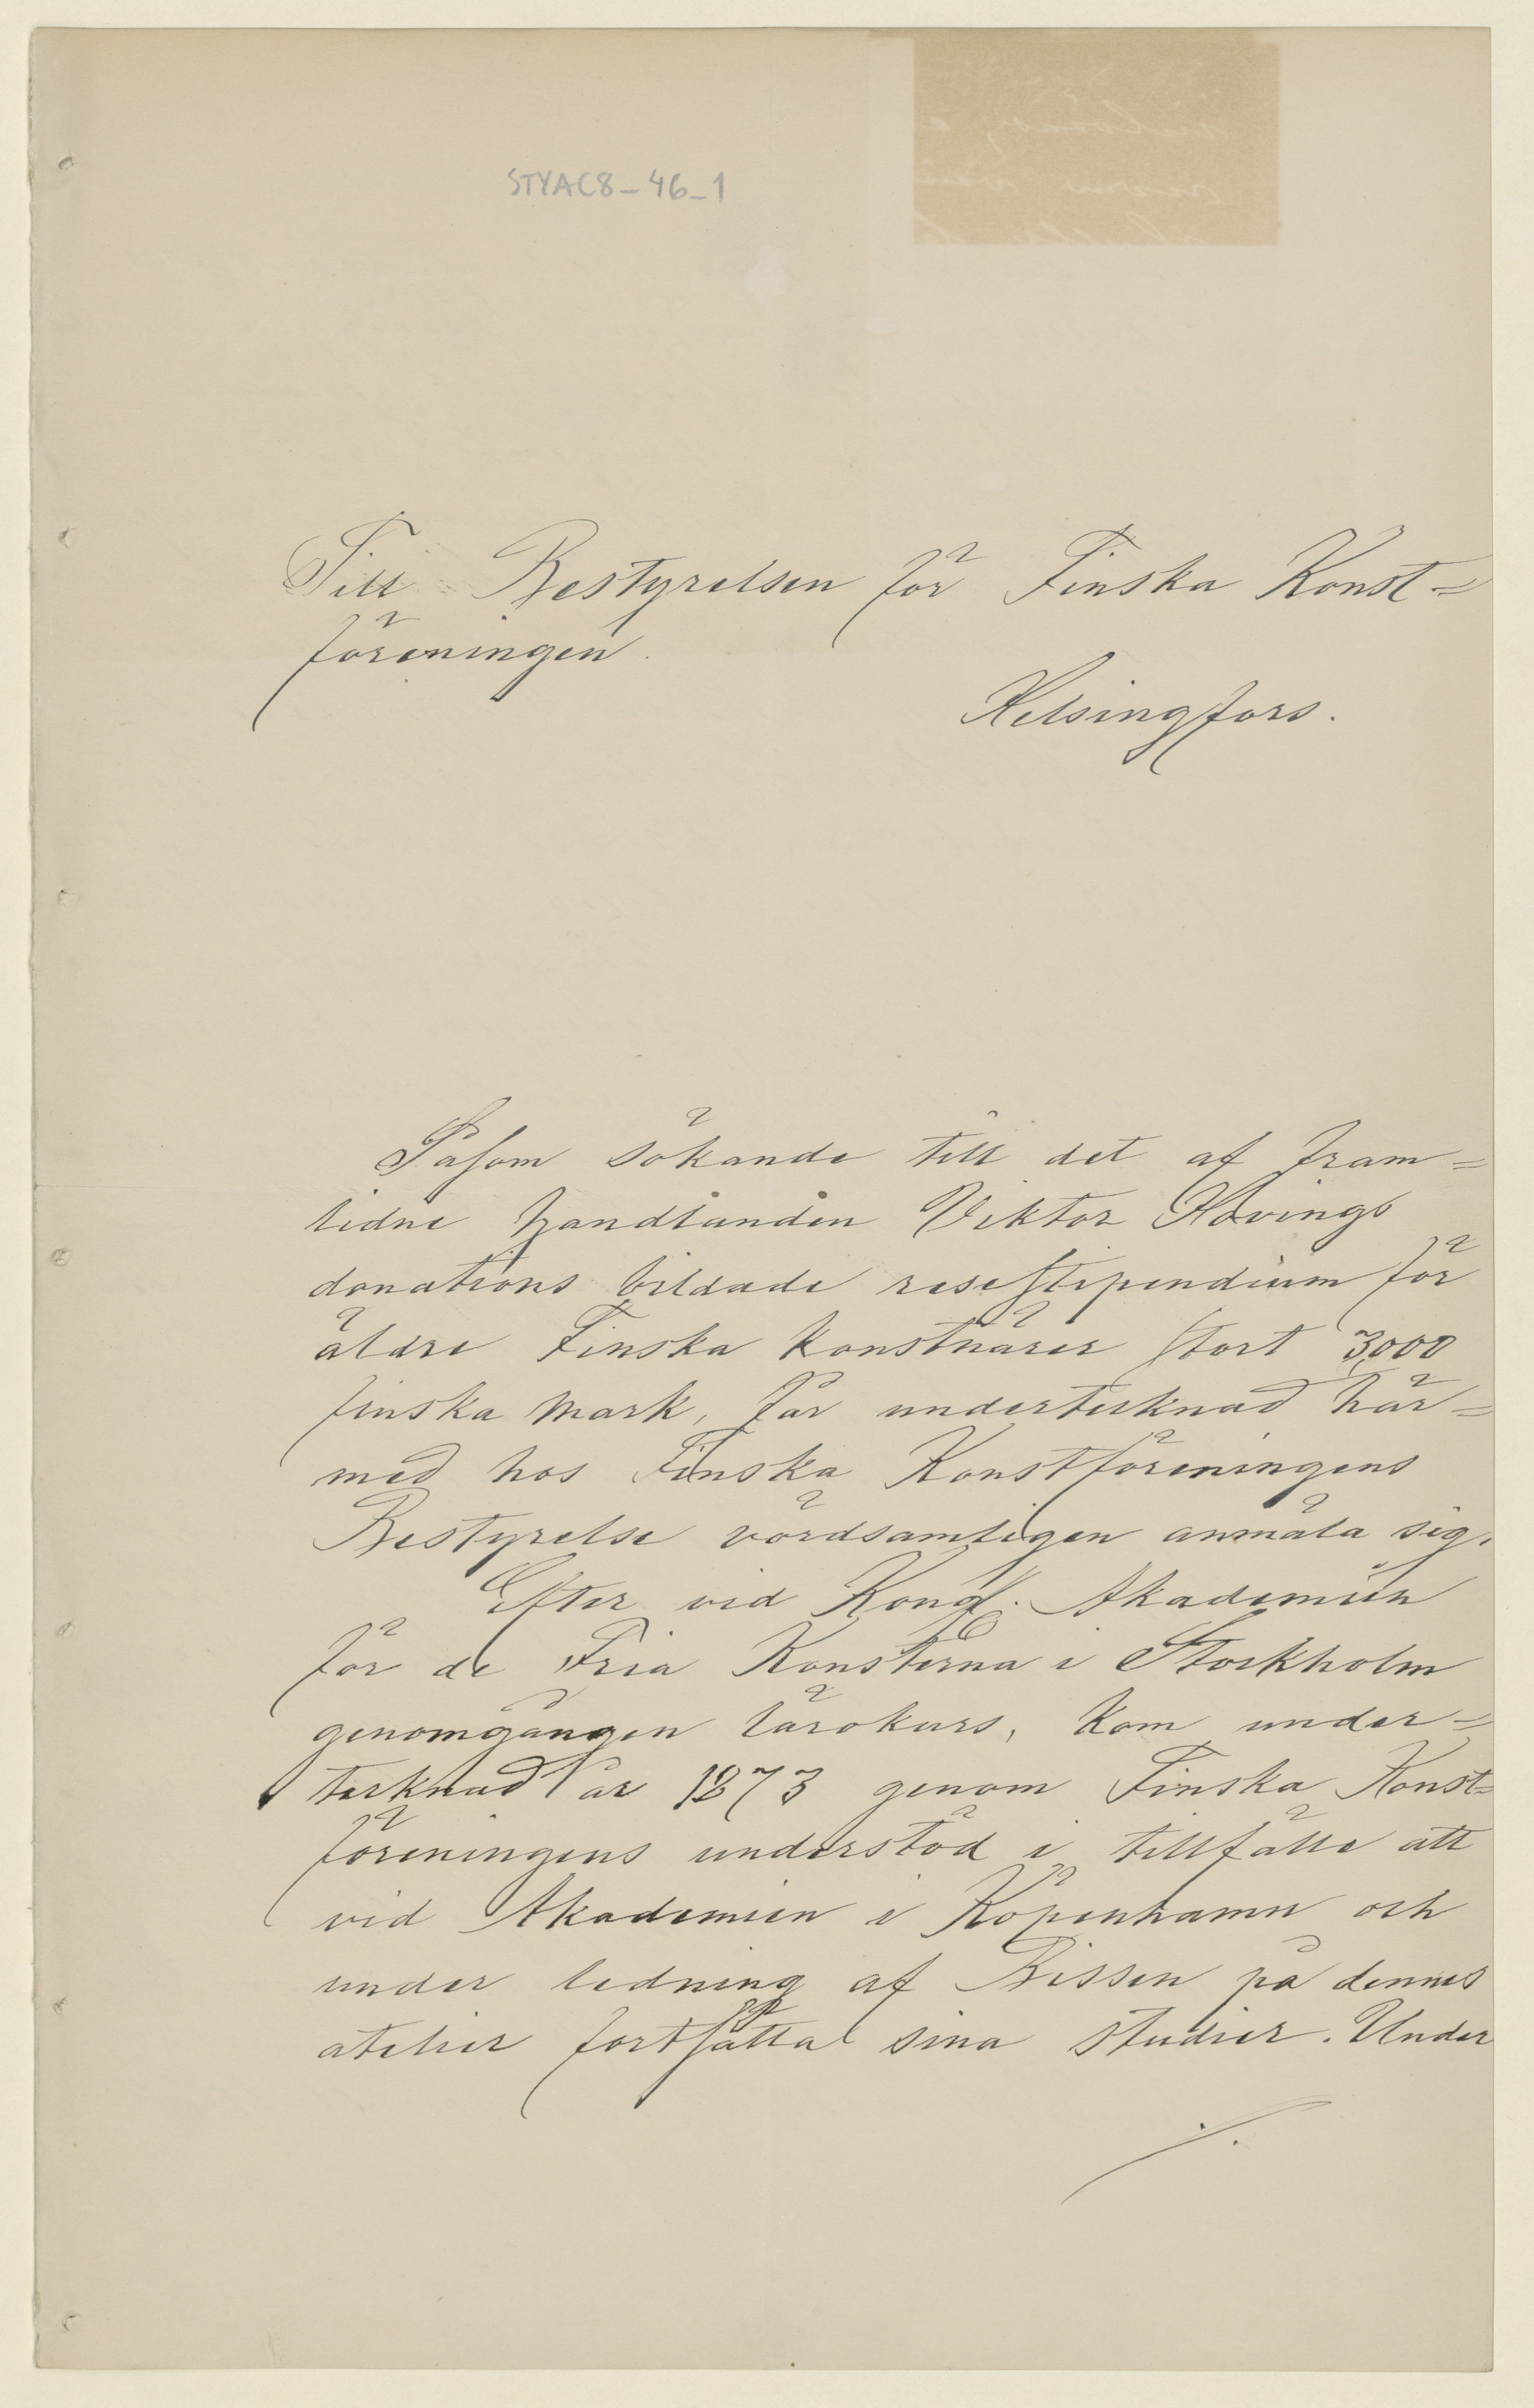 STYAC8-46-1
Till Bestyrelsen för Finska Konst=
föreningen.
Helsingfors.
Såsom sökande till det af fram=
lidne handlanden Viktor Hovings
donations bildade resestipendium för
äldre Finska Konstnärer stort 3,000
finska mark, får undertecknad här=
med hos Finska Konstföreningens
Bestyrelse vördsamligen anmäla sig.
Efter vid Kongl. Akademien
för de Fria Konsterna i Stockholm
genomgången lärokurs, kom under=
tecknad år 1873 genom Finska Konst=
föreningens understöd i tillfälle att
vid Akademien i Köpenhamn och
under ledning af Bissen på dennes
atelier fortsätta sina studier. Under